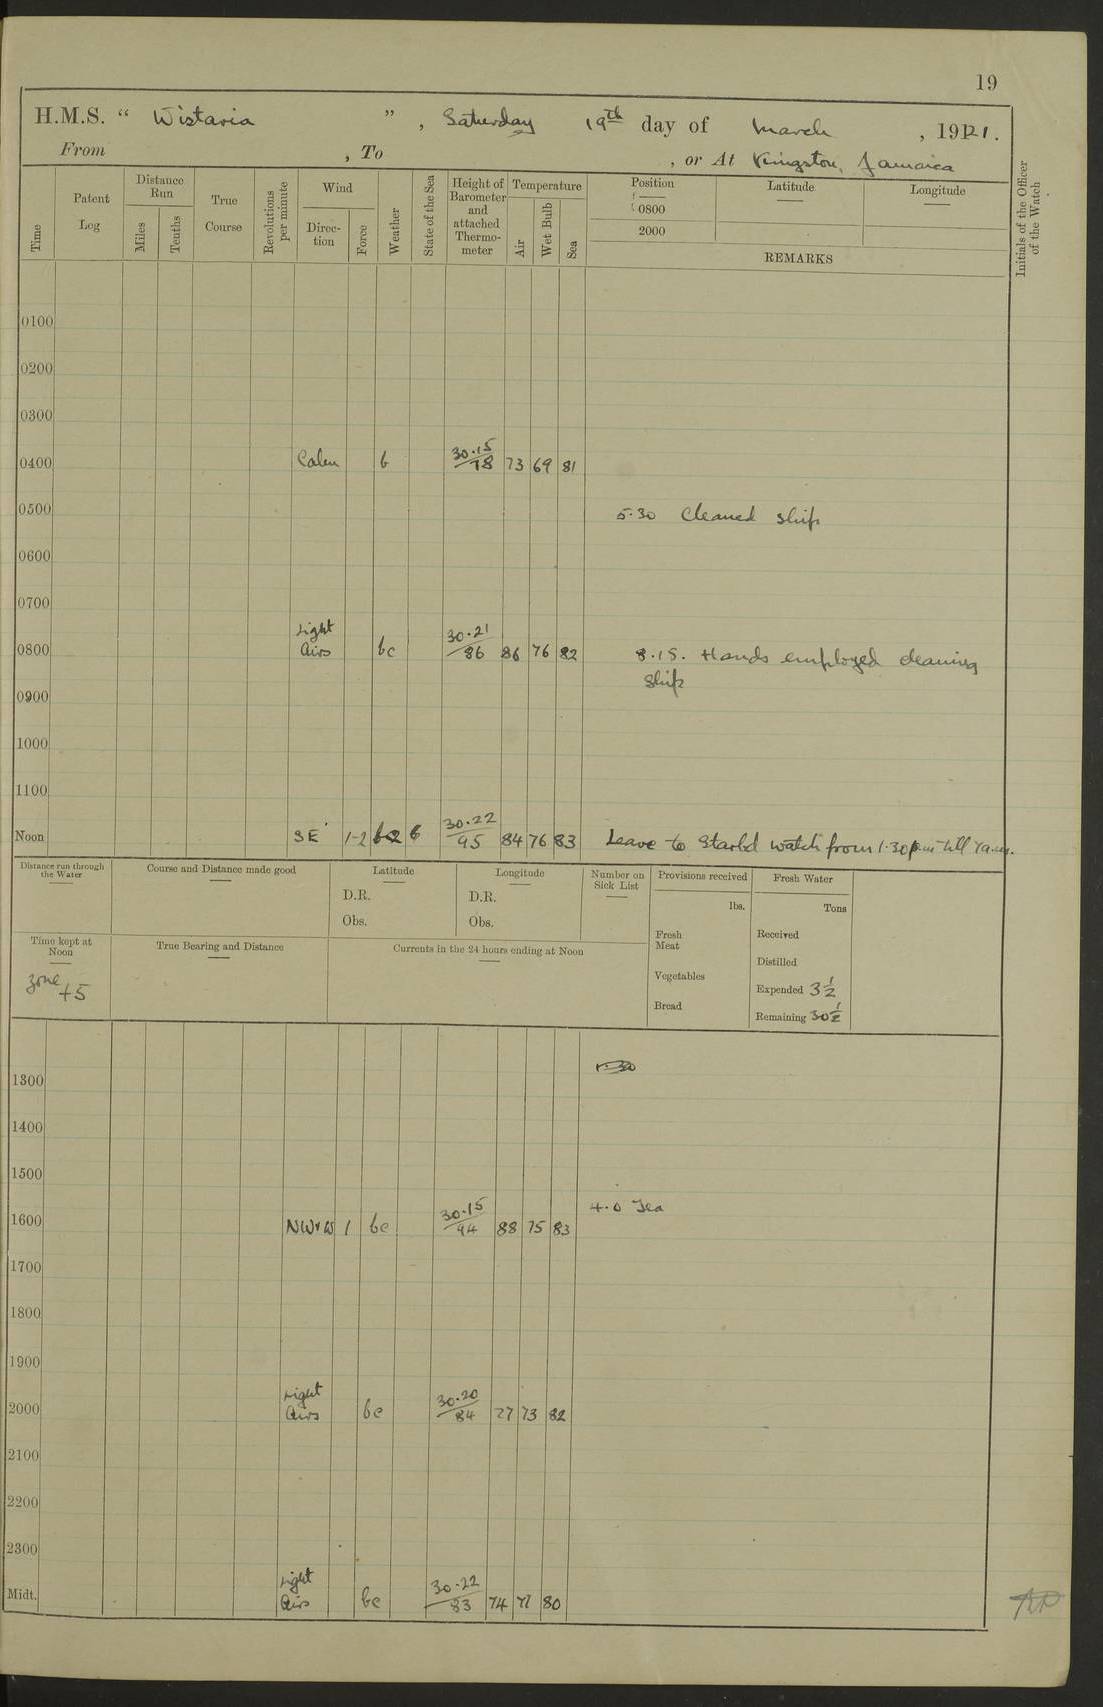 19
H.M.S. “ Wistaria ” , Saturday 19th day of March , 1921.
From , To , or At Kingston, Jamaica
Time
Patent Log
Distance Run
Miles
Tenths
True Course
Revolutions per minute
Wind
Direc-tion
Force
Weather
State of the Sea
Height of Barometer and attached Thermo-meter
Temperature
Air
Wet Bulb
Sea
Position
0800
2000
Latitude
Longitude
REMARKS
Initials of the Officer of the Watch
0100
0200
0300
0400 Calm b 30.15/78 73 69 81
0500 5.30 Cleaned ship
0600
0700
0800 Light Airs bc 30.21/86 86 76 82 8.15. Hands employed cleaning
ship
0900
1000
1100
Noon SE 1-2 b 30.22/95 84 76 83 Leave to Starbd watch from 1.30 pm till 7 a.m.
Distance run through the Water
Course and Distance made good
Latitude
D.R.
Obs.
Longitude
D.R.
Obs.
Number on Sick List
Provisions received
lbs.
Fresh Meat
Vegetables
Bread
Fresh Water
Tons
Received
Distilled
Expended 3 1/2
Remaining 30 1/2
Time kept at Noon
zone +5
True Bearing and Distance
Currents in the 24 hours ending at Noon
1300
1400
1500
1600 NW×W 1 bc 30.15/94 88 75 83 4.0 Tea
1700
1800
1900
2000 Light Airs bc 30.20/84 77 73 82
2100
2200
2300
Midt. Light Airs bc 30.22/83 74 71 80